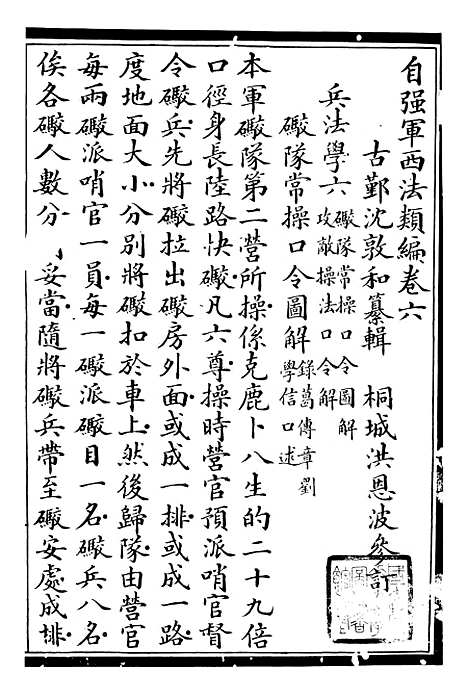 自强軍西法類編卷六
古鄞沈敦和纂輯 桐城洪恩波參訂
兵法學六 礮隊常操口令圖解
攻敵操法口令解
礮隊常操口令圖解 錄葛傳章劉
學信口述
本軍礮隊第二營所操係克鹿卜八生的二十九倍
口徑身長陸路快礮凡六尊操時營官預派哨官督
令礮兵先將礮拉出礮房外面或成一排或成一路
度地面大小分別將礮扣於車上然後歸隊由營官
每兩礮派哨官一員每一礮派礮目一名礮兵八名
俟各礮人數分 妥當隨將礮兵帶至礮安處成排